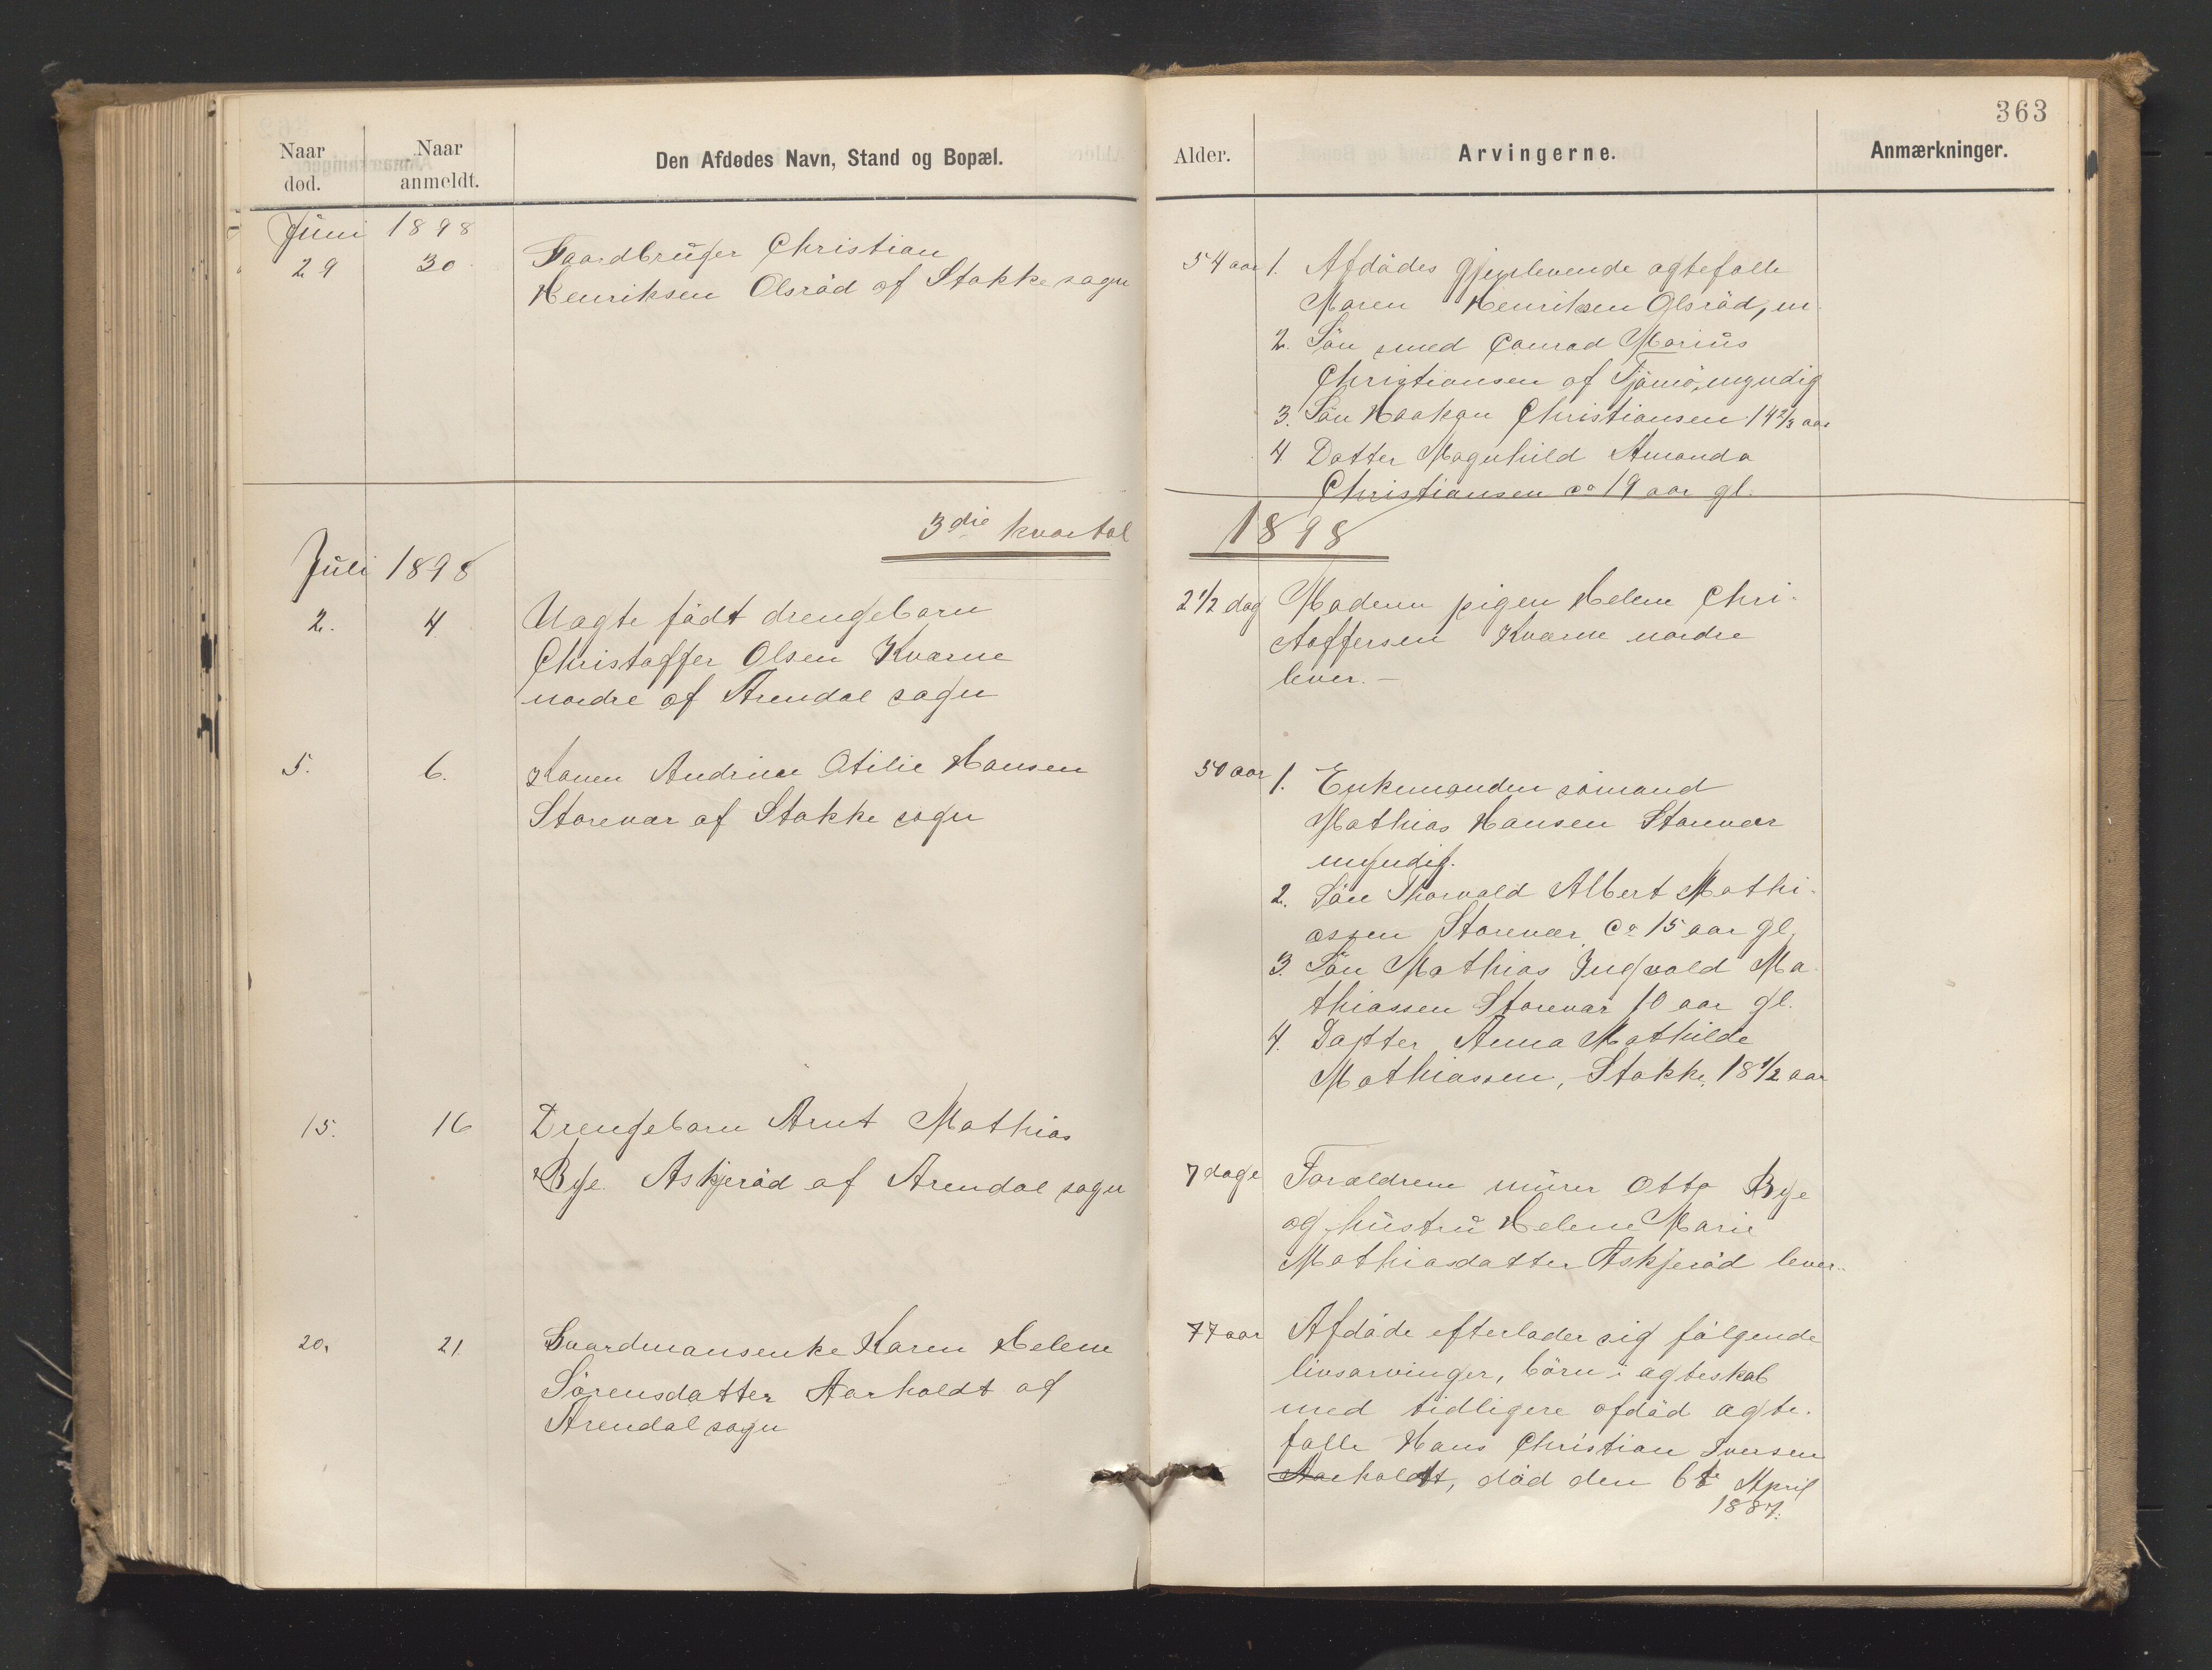 363
Naar død.
Naar anmeldt.
Den Afdødes Navn, Stand og Bopæl.
Alder.
Arvingerne.
Anmærkninger.
Juni 1898
29 30 Gaardbruger Christian
Henriksen Olsröd af Stokke sogn
54 aar 1. Afdödes gjenlevende ægtefælle
Maren Henriksen Olsröd, m.
2. Sön smed Conrad Marius
Christiansen af Tjömö, myndig
3. Sön Haakon Christiansen 14 2/3 aar
4 Datter Magnhild Amanda
Christiansen ca 19 aar gl.
3die kvartal 1898
Juli 1898
2. 4 Uægte födt drengebarn
Christoffer Olsen Kværne
nordre af Arendal sogn
2 1/2 dag Moderen pigen Helene Chri-
stoffersen Kværne nordre
lever. –
5. 6. Karen Andrine Otilie Hansen
Storevar af Stokke sogn
50 aar 1. Enkemanden sömand
Mathias Hansen Storevar
myndig.
2. Sön Thorvald Albert Mathi-
assen Storevar ca 15 aar gl.
3. Sön Mathias Ingvald Ma-
thiassen Storevar 10 aar gl.
4. Datter Anna Mathilde
Mathiassen, Stokke, 18 1/2 aar
15. 16 Drengebarn Arnt Mathias
Bye Askjeröd af Arendal sogn
7 dage Forældrene murer Otto Bye
og hustru Helene Marie
Mathiasdatter Askjeröd lever.
20. 21. Gaardmansenke Karen Helene
Sörensdatter Aarholdt af
Arendal sogn
77 aar Afdöde efterlader sig fölgende
livsarvinger, börn i ægteskab
med tidligere afdöd ægte-
fælle Hans Christian Iversen
Aarholdt, död den 6te April
1887.